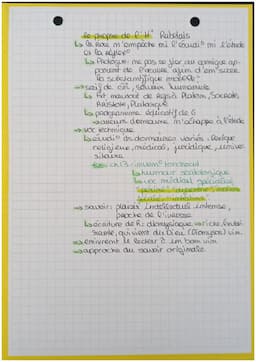 Le propre de l'H Rabelais
↳ le rire n'empêche ni l'érudi° ni l'étude
et la réflex°
↳ Prologue: ne pas se fier au comique ap-
parent de l'œuvre afin d'en sucer
"la substantifique moelle"
→ soif de cn, savoirs humanistes
↳ fait souvent de réfs à Platon, Socrate,
Aristote, Plutarque
↳ programme éducatif de G
→ aucun domaine n'échappe à l'étude
→ voc technique
↳ érudi° ds domaines variés:
religieux, médical, juridique, univer-
sitaire
ch 13: inven° torchecul
↳ humour scatologique
↳ voc médical spécialisé
→ savoir: plaisir intellectuel intense,
proche de l'ivresse
↳ écriture de R: dionysiaque → riche,
qui vient du Dieu (Dionysos) vin
→ enivrent le lecteur à un bon vin
→ approche du savoir originale